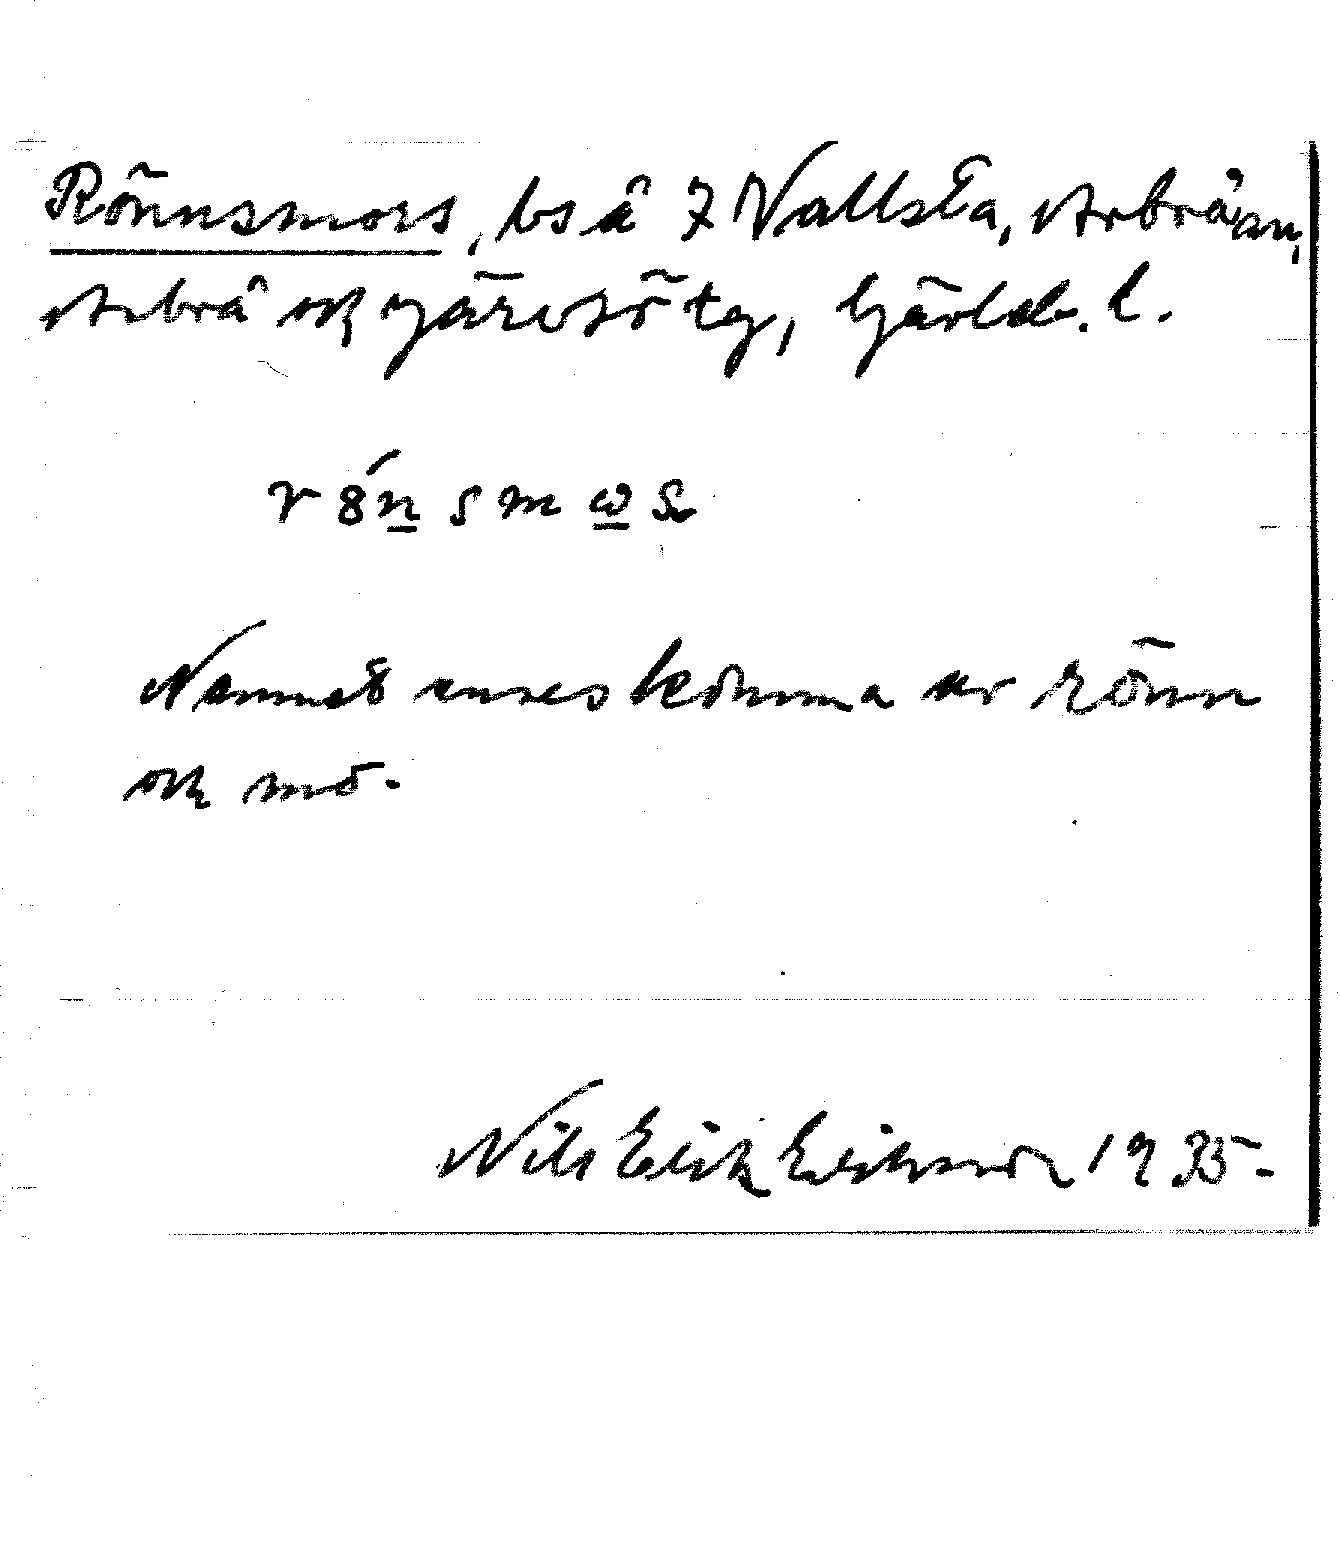 Rönnsmors, bs å 7 Vallsta, Arbrå sn,
Arbrå och Järvsö tg, Gävleb. l.
Namnet anses komma av rönn
och mo.
Nils Erik Eriksson 1935.